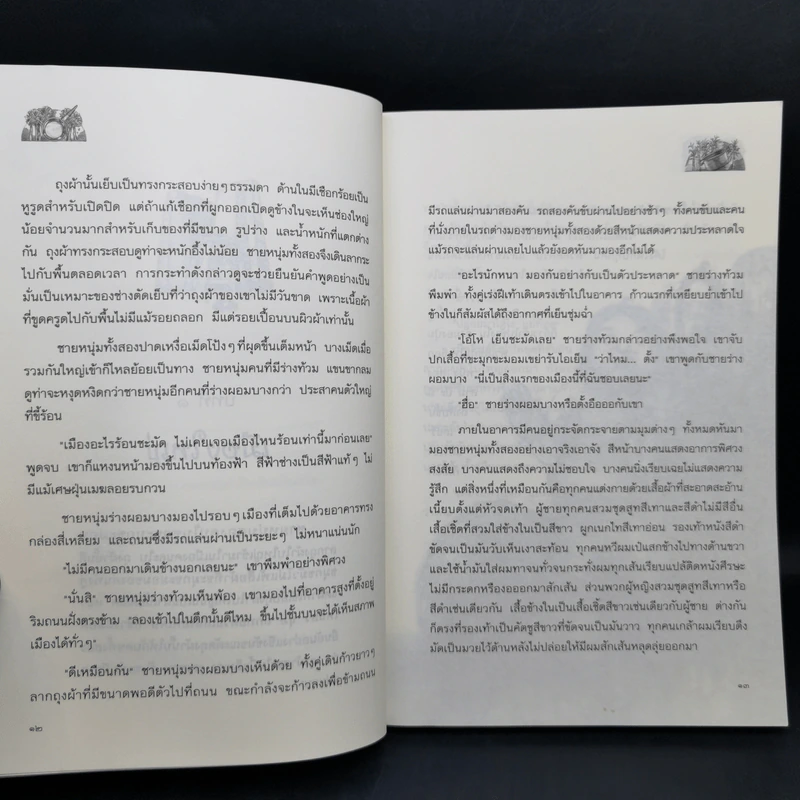 ถุงผ้านั้นเย็บเป็นทรงกระสอบง่ายๆ ธรรมดา ด้านในมีเชือกร้อยเป็น
หูรูดสำหรับเปิดปิด แต่ถ้าแก้เชือกที่ผูกออกเปิดดูข้างในจะเห็นช่องใหญ่
น้อยจำนวนมากสำหรับเก็บของที่มีขนาด รูปร่าง และน้ำหนักที่แตกต่าง
กัน ถุงผ้าทรงกระสอบดูท่าจะหนักอึ้งไม่น้อย ชายหนุ่มทั้งสองจึงเดินลากระ
ไปกับพื้นตลอดเวลา การกระทำดังกล่าวดูจะช่วยยืนยันคำพูดอย่างเป็น
มั่นเป็นเหมาะของช่างตัดเย็บที่ว่าถุงผ้าของเขาไม่มีวันขาด เพราะเนื้อผ้า
ที่ขูดครูดไปกับพื้นไม่มีแม้รอยถลอก มีแต่รอยเปื้อนบนผิวผ้าเท่านั้น
ชายหนุ่มทั้งสองปาดเหงื่อเม็ดโป้งๆ ที่ผุดขึ้นเต็มหน้า บางเม็ดเมื่อ
รวมกันใหญ่เข้าก็ไหลย้อยเป็นทาง ชายหนุ่มคนที่มีร่างท้วม แขนขากลม
ดูท่าจะหงุดหงิดกว่าชายหนุ่มอีกคนที่ร่างผอมบางกว่า ประสาคนตัวใหญ่
ที่ขี้ร้อน
"เมืองอะไรร้อนชะมัด ไม่เคยเจอเมืองไหนร้อนเท่านี้มาก่อนเลย"
พูดจบ เขาก็แหงนหน้ามองขึ้นไปบนท้องฟ้า สีฟ้าช่างเป็นสีฟ้าแท้ๆ ไม่
มีแม้เศษฝุ่นเมฆลอยรบกวน
ชายหนุ่มร่างผอมบางมองไปรอบๆ เมืองที่เต็มไปด้วยอาคารทรง
กล่องสี่เหลี่ยม และถนนซึ่งมีรถแล่นผ่านเป็นระยะๆ ไม่หนาแน่นนัก
"ไม่มีคนออกมาเดินข้างนอกเลยนะ" เขาพึมพำอย่างพิศวง
"นั่นสิ" ชายหนุ่มร่างท้วมเห็นพ้อง เขามองไปที่อาคารสูงที่ตั้งอยู่
ริมถนนฝั่งตรงข้าม "ลองเข้าไปในตึกนั้นดีไหม ขึ้นไปชั้นบนจะได้เห็นสภาพ
เมืองได้ทั่วๆ"
"ดีเหมือนกัน" ชายหนุ่มร่างผอมบางเห็นด้วย ทั้งคู่เดินก้าวยาวๆ
ลากถุงผ้าที่มีขนาดพอดีตัวไปที่ถนน ขณะกำลังจะก้าวลงเพื่อข้ามถนน
๑๒
มีรถแล่นผ่านมาสองคัน รถสองคันขับผ่านไปอย่างช้าๆ ทั้งคนขับและคน
ที่นั่งภายในรถต่างมองชายหนุ่มทั้งสองด้วยสีหน้าแสดงความประหลาดใจ
แม้รถจะแล่นผ่านเลยไปแล้วยังอดหันมามองอีกไม่ได้
"อะไรนักหนา มองกันอย่างกับเป็นตัวประหลาด" ชายร่างท้วม
พึมพำ ทั้งคู่เร่งฝีเท้าเดินตรงเข้าไปในอาคาร ก้าวแรกที่เหยียบย่ำเข้าไป
ข้างในก็สัมผัสได้ถึงอากาศที่เย็นชุ่มฉ่ำ
"โอ้โห เย็นชะมัดเลย" ชายร่างท้วมกล่าวอย่างพึงพอใจ เขาจับ
ปกเสื้อที่ขะมุกขะมอมเขย่ารับไอเย็น "ว่าไหม... ตั้ง" เขาพูดกับชายร่าง
ผอมบาง "นี่เป็นสิ่งแรกของเมืองนี้ที่ฉันชอบเลยนะ"
"ฮื่อ" ชายร่างผอมบางหรือตั้งฮือออกับเขา
ภายในอาคารมีคนอยู่กระจัดกระจายตามมุมต่างๆ ทั้งหมดหันมา
มองชายหนุ่มทั้งสองอย่างเอาจริงเอาจัง สีหน้าบางคนแสดงอาการพิศวง
สงสัย บางคนแสดงถึงความไม่ชอบใจ บางคนนิ่งเรียบเฉยไม่แสดงความ
รู้สึก แต่สิ่งหนึ่งที่เหมือนกันคือทุกคนแต่งกายด้วยเสื้อผ้าที่สะอาดสะอ้าน
เนี้ยบตั้งแต่หัวจดเท้า ผู้ชายทุกคนสวมชุดสูทสีเทาและสีดำไม่มีสีอื่น
เสื้อเชิ้ตที่สวมใส่ข้างในเป็นสีขาว ผูกเนกไทสีเทาอ่อน รองเท้าหนังสีดำ
ขัดจนเป็นมันวับเห็นเงาสะท้อน ทุกคนหวีผมเป๋แสกข้างไปทางด้านขวา
และใช้น้ำมันใส่ผมทาจนทั่วจนกระทั่งผมทุกเส้นเรียบแปล้ติดหนังศีรษะ
ไม่มีกระดกหรืองอกออกมาสักเส้น ส่วนพวกผู้หญิงสวมชุดสีเทาหรือ
สีดำเช่นเดียวกัน เสื้อข้างในเป็นเสื้อเชิ้ตสีขาวเช่นเดียวกับผู้ชาย ต่างกัน
ก็ตรงที่รองเท้าเป็นคัตชูสีขาวที่ขัดจนเป็นมันวาว ทุกคนเกล้าผมเรียบตึง
มัดเป็นมวยไว้ด้านหลังไม่ปล่อยให้มีผมสักเส้นหลุดลุ่ยออกมา
๑๓